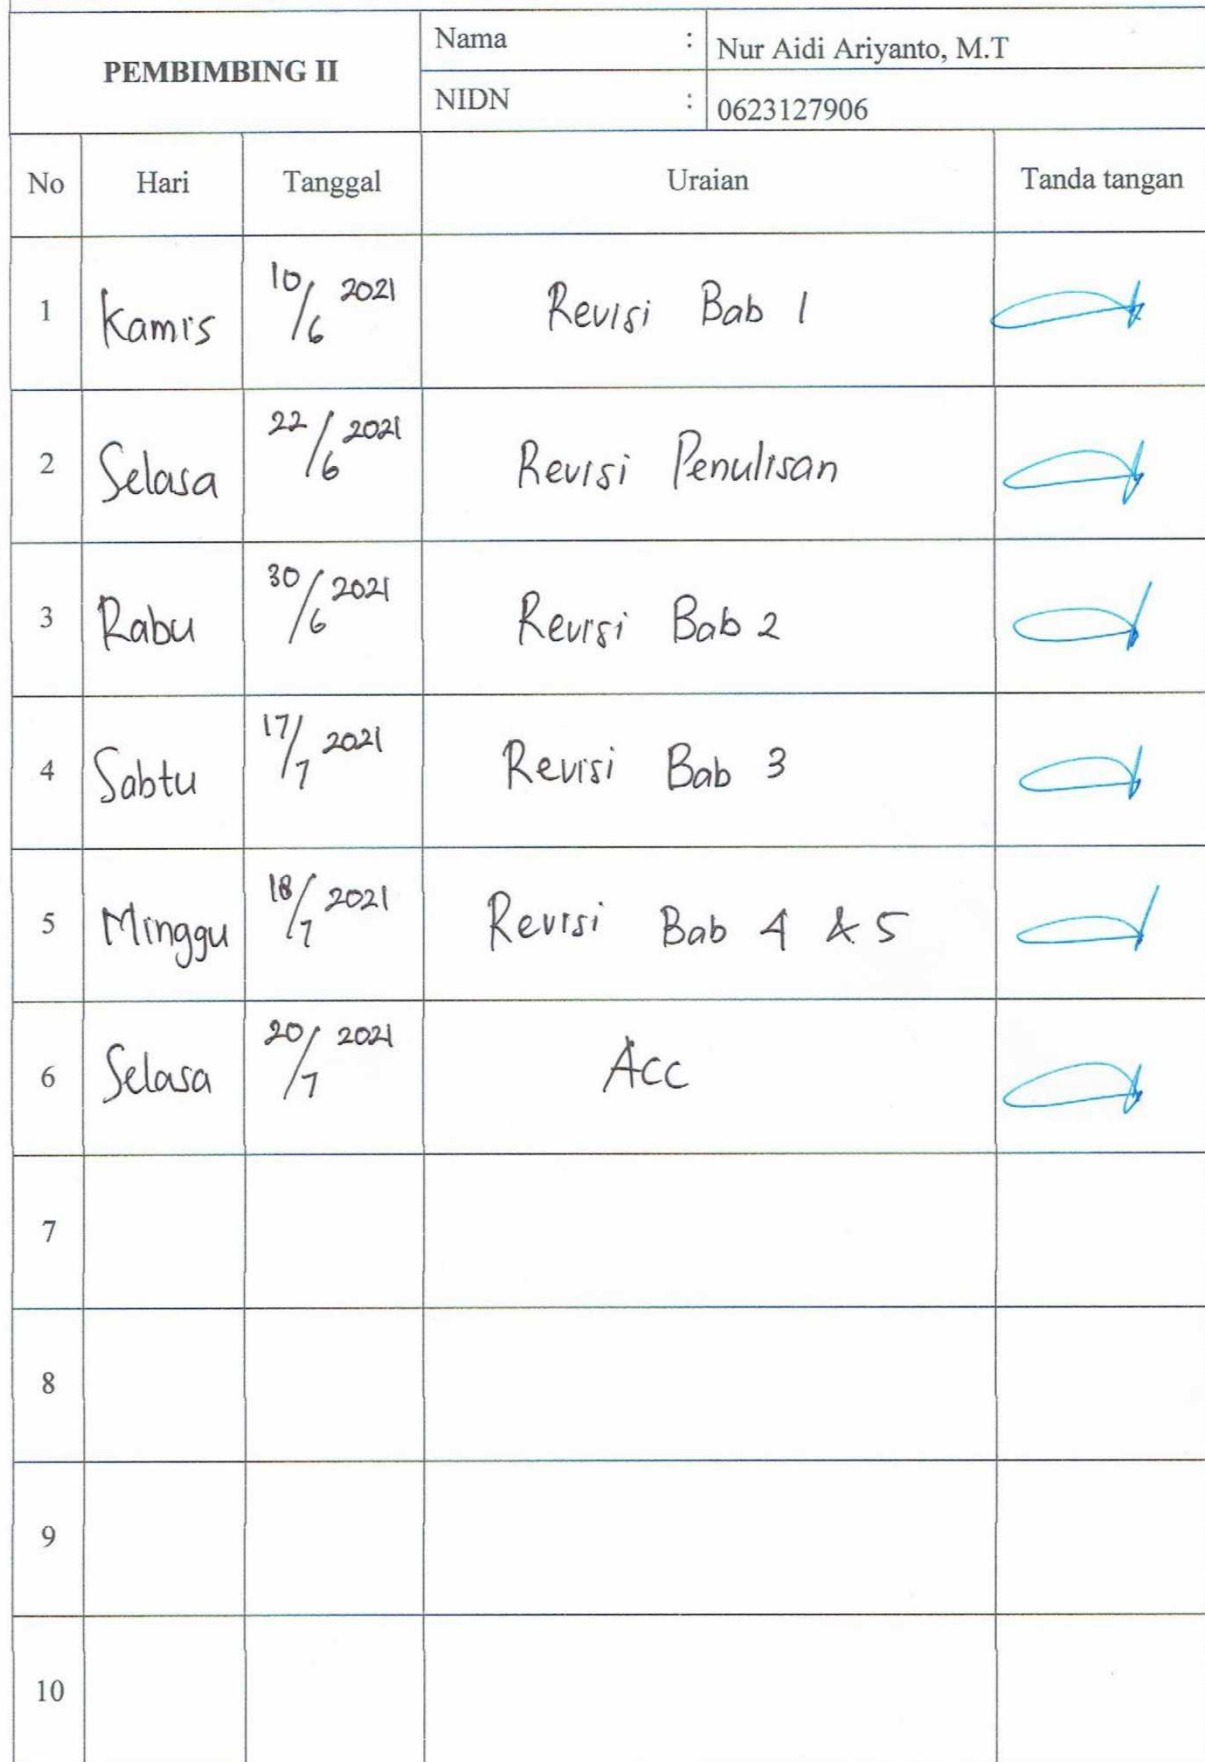 PEMBIMBING II
Nama : Nur Aidi Ariyanto, M.T
NIDN : 0623127906
No Hari Tanggal Uraian Tanda tangan
1 Kamis 10/6 2021 Revisi Bab 1
2 Selasa 22/6 2021 Revisi Penulisan
3 Rabu 30/6 2021 Revisi Bab 2
4 Sabtu 17/7 2021 Revisi Bab 3
5 Minggu 18/7 2021 Revisi Bab 4 & 5
6 Selasa 20/7 2021 Acc
7
8
9
10